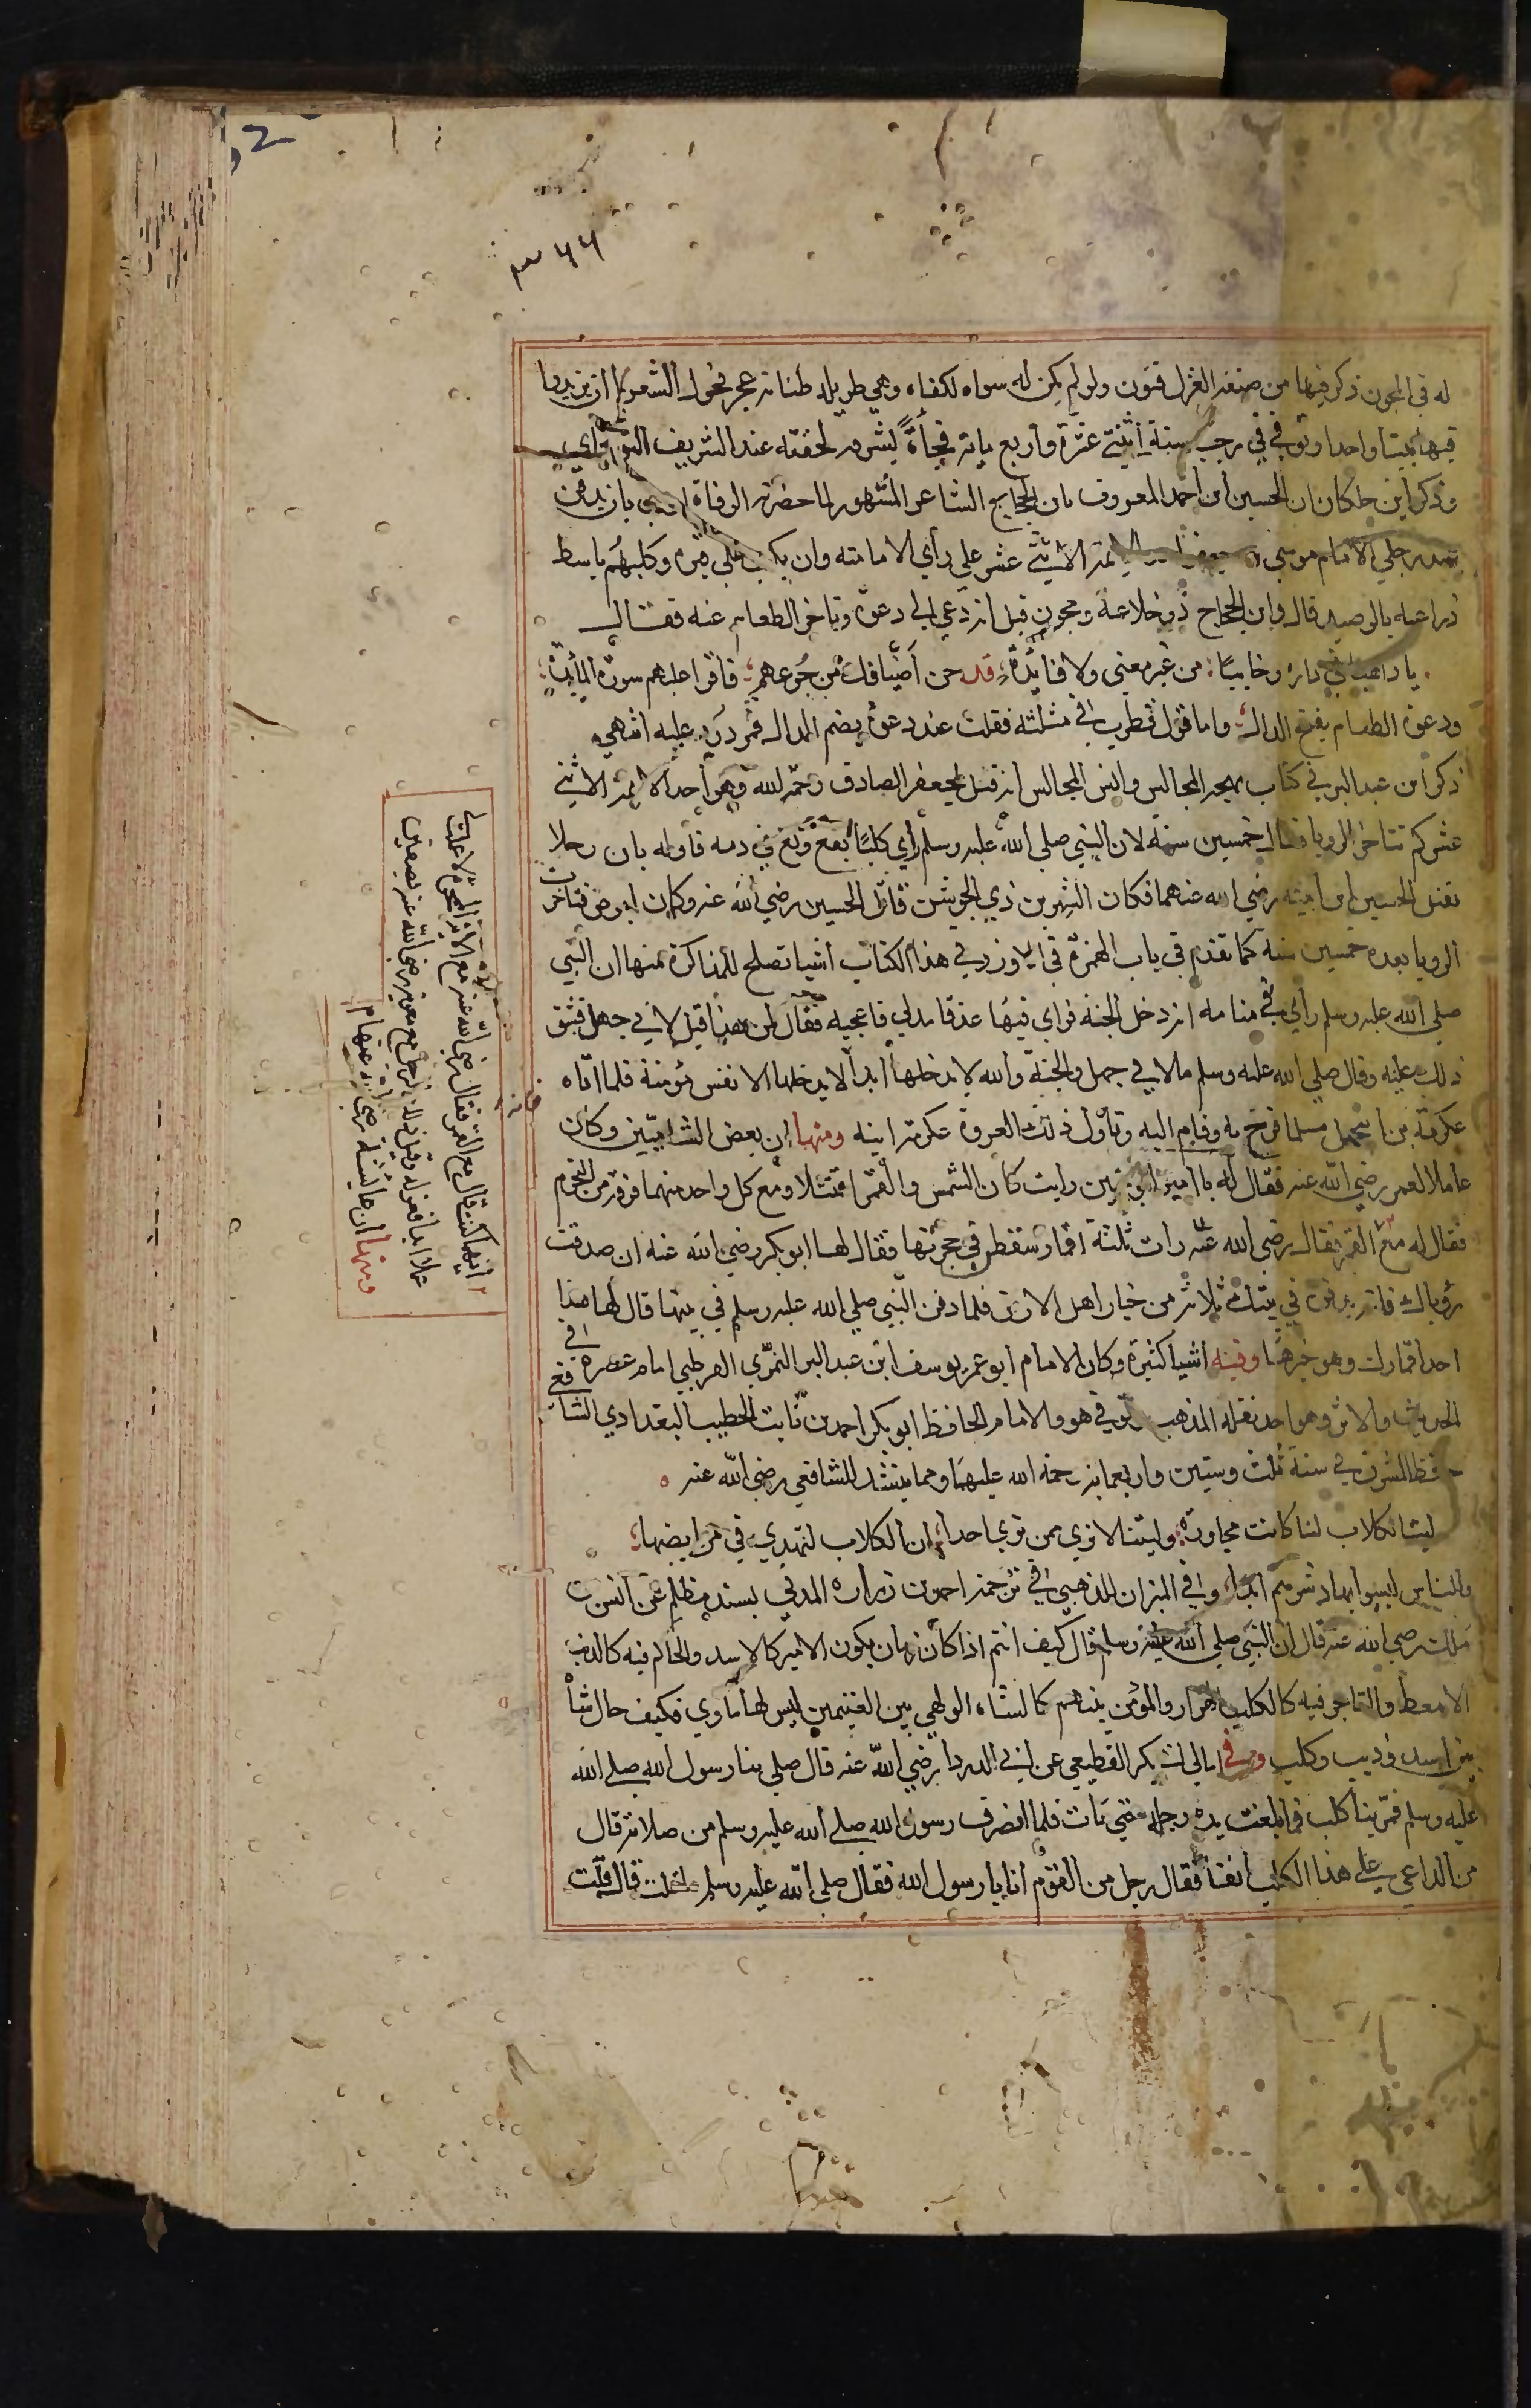 2
٣٤٤
له في المجون ذكر فيها من صنعة الغزل فنون ولو لم يكن له سواه لكفاه وهي طويلة طنانة عجز فحول الشعر ان يزيدوا
فيها بيتا واحدا وتوفي في رجب سنة اثنتي عشرة واربع ماية فجأة لحقته عند الشريف
وذكر ابن خلكان ان الحسين ابن احمد المعروف بابن الحجاج الشاعر المشهور لما حضرته الوفاة اوصي بان يدفن
عند رجلي الامام موسي الاثني عشر علي رأي الامامية وان يكتب علي قبره وكلبهم باسط
ذراعيه بالوصيد قال وابن الحجاج ذو خلاعة ومجون قيل انه دعي الي دعوة وتاخر الطعام عنه فقال
يا ذاهبا في داره وجائيا من غير معني ولا فايدة قد جن أضيافك من جوعهم فاقرا عليهم سورة المائدة
ودعوة الطعام بفتح الدال واما قول قطرب في مثلثه فقلت عند دعوة بضم الدال فمردود عليه انتهي
ذكر ابن عبد البر في كتاب بهجة المجالس وانس المجالس انه قيل لجعفر الصادق رحمه الله وهو احد الايمة الاثني
عشر كم تتاخر الرويا فقال خمسين سنة لان النبي صلي الله عليه وسلم رأي كلبا أبقع ولغ في دمه فاوله بان رجلا
يقتل الحسين ابن ابنته رضي الله عنهما فكان الشمر بن ذي الجوشن قاتل الحسين رضي الله عنه وكان ابرص فتاخرت
الرويا بعده خمسين سنة كما تقدم في باب الهمزة في الاوز وفي هذا الكتاب اشيا تصلح للمذاكرة منها ان النبي
صلي الله عليه وسلم رأي في منامه انه دخل الجنة فراي فيها عذقا مدلي فاعجبه فقال لمن هذا قيل لابي جهل فشق
ذلك عليه وقال صلي الله عليه وسلم ما لابي جهل والجنة والله لا يدخلها ابدا لا يدخلها الا نفس مؤمنة فلما اتاه
عكرمة بن ابي جهل مسلما فرح به وقام اليه وتأول ذلك العروق عكرمة ابنه ومنها ان بعض الشاميين وكان
عاملا لعمر رضي الله عنه فقال له يا امير المؤمنين رايت كان الشمس والقمر اقتتلا ومع كل واحد منهما فرقة من النجوم
فقال له مع القمر فقال رضي الله عنه رات ثلثة اقمار سقطن في حجرتها فقال لها ابو بكر رضي الله عنه ان صدقت
رؤياك فانه يدفن في بيتك ثلاثة من خيار اهل الارض فلما دفن النبي صلي الله عليه وسلم في بيتها قال لها هذا
احد اقمارك وهو خيرها وفيه اشيا كثيرة وكان الامام ابو عمر يوسف ابن عبد البر النمري القرطبي امام عصره في
الحديث والاثر وهو احد نقلة المذهب توفي هو والامام الحافظ ابو بكر احمد بن ثابت الخطيب البغدادي الشافعي
حافظ المشرق في سنة ثلث وستين واربعماية رحمة الله عليهما ومما ينشد للشافعي رضي الله عنه
ليت الكلاب لنا كانت مجاورة وليتنا لا نري ممن نري احدا ان الكلاب لتهدي في مرابضها
والناس ليسوا بهاد شرهم ابدا وفي الميزان للذهبي في ترجمة احمد بن زرارة المدني بسند مظلم عن انس بن
ملك رضي الله عنه قال ان النبي صلي الله عليه وسلم قال كيف انتم اذا كان زمان يكون الامير كالاسد والحاكم فيه كالذيب
الامعط والتاجر فيه كالكلب الهرار والمؤمن بينهم كالشاه الولهي بين الغنمين ليس لها مأوي فكيف حال شاة
بين اسد وذيب وكلب وفي امالي ابي بكر القطيعي عن ابي الدرداء رضي الله عنه قال صلي بنا رسول الله صلي الله
عليه وسلم فمر بنا كلب فما بلغت يده رجله حتي مات فلما انصرف رسول الله صلي الله عليه وسلم من صلاته قال
من الداعي علي هذا الكلب انفا فقال رجل من القوم انا يا رسول الله فقال صلي الله عليه وسلم قال قلت
ايهما كنت قال مع القمر فقال رضي الله عنه مع الاية الممحوة لا عملت لي
عملا ابدا فعزله وقتل ذلك الرجل مع معوية رضي الله عنه بصفين
ومنها ان عايشة رضي الله عنها